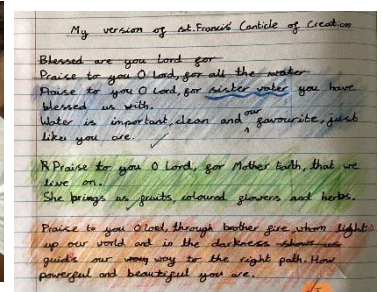 My version of st. Francis' Canticle of Creation
Blessed are you Lord for
Praise to you O Lord, for all the water
Praise to you O Lord, for sister water you have
blessed us with.
Water is important, clean and our favourite, just
like you are.
R Praise to you O Lord, for Mother Earth, that we
live on.
She brings us fruits, coloured flowers and herbs.
Praise to you O Lord, through brother fire, whom lights
up our world and in the darkness shows us
guids our way way to the right path. How
powerful and beautiful you are.